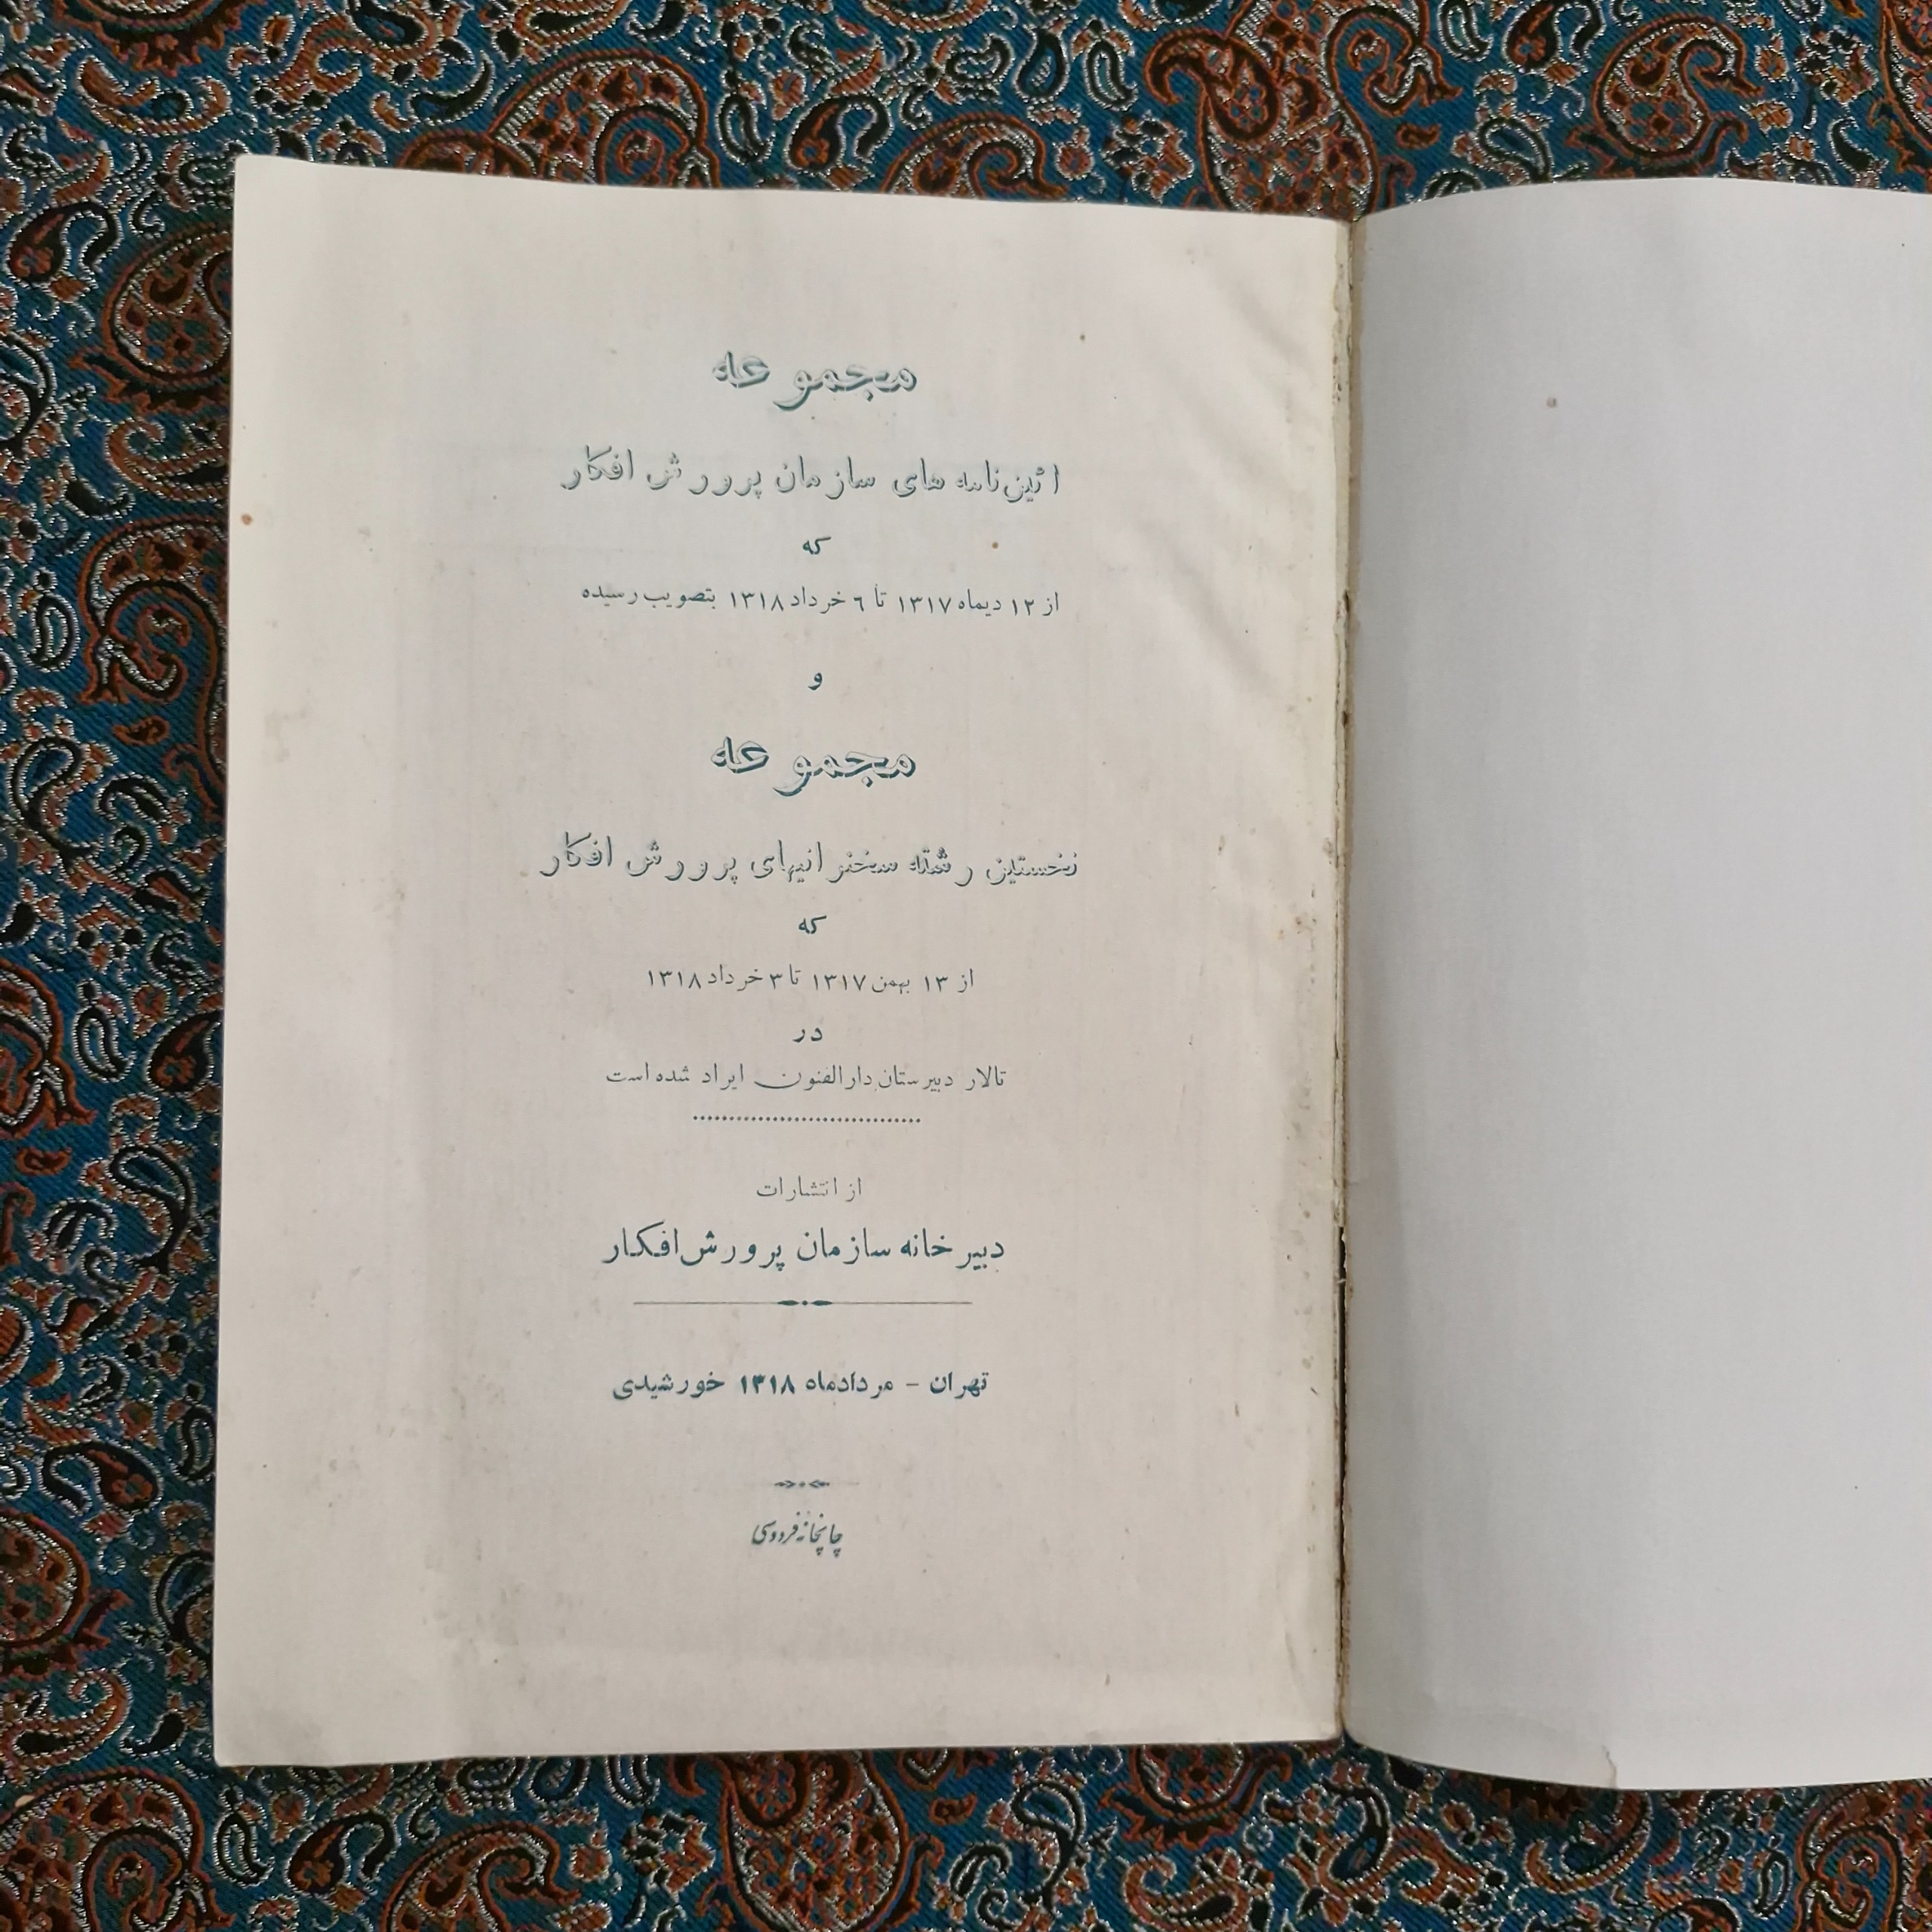 مجموعه
ائین‌نامه های سازمان پرورش افکار
که
از ۱۲ دیماه ۱۳۱۷ تا ۶ خرداد ۱۳۱۸ بتصویب رسیده
و
مجموعه
نخستین رشته سخنرانیهای پرورش افکار
که
از ۱۳ بهمن ۱۳۱۷ تا ۳ خرداد ۱۳۱۸
در
تالار دبیرستان دارالفنون ایراد شده است
از انتشارات
دبیرخانه سازمان پرورش افکار
تهران - مردادماه ۱۳۱۸ خورشیدی
چاپخانه فردوسی